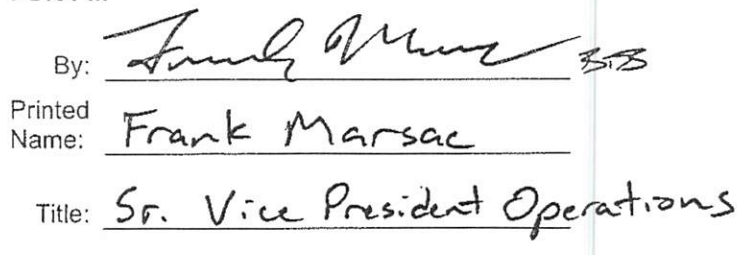 By:
Printed
Name: Frank Marsac
Title: Sr. Vice President Operations